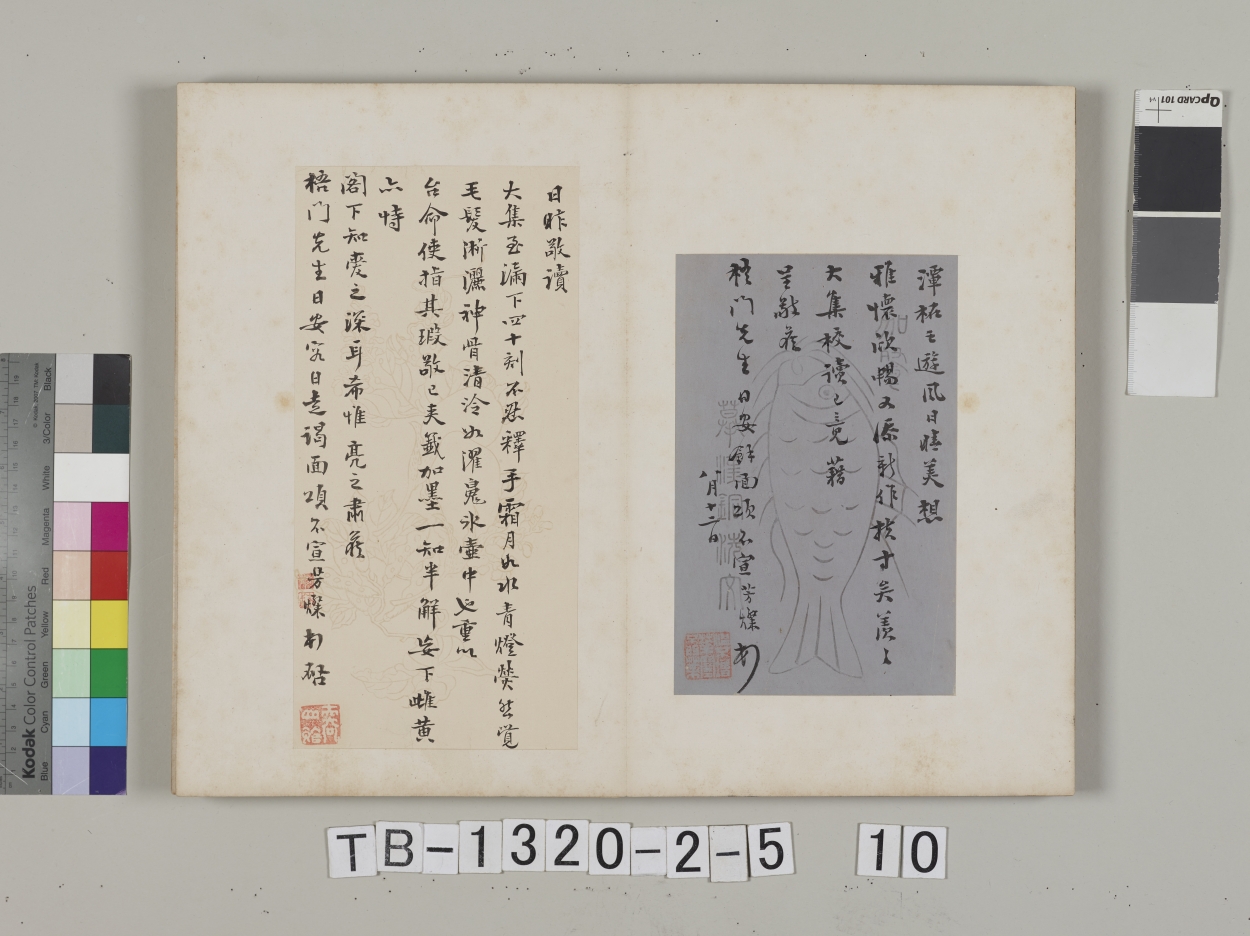 潭柘之遊風日晴美想
雅懷欣暢又添新作換寸矣羨羨
大集校讀已竟藉
呈敬候
梧門先生日安餘面頌不宣芳燦頓
八月十二日
日昨敬讀
大集至漏下四十刻不忍釋手霜月如水青燈熒然覺
毛髮淅灑神骨清泠如濯魂冰壺中也重以
台命使指其瑕敬已夾籤加墨一知半解妄下雌黃
亦恃
閣下知愛之深耳希惟亮之肅候
梧門先生日安容日走謁面頌不宣芳燦頓啟
QPCARD 101
Kodak Color Control Patches
Blue
Cyan
Green
Yellow
Red
Magenta
White
3/Color
Black
TB-1320-2-5 10